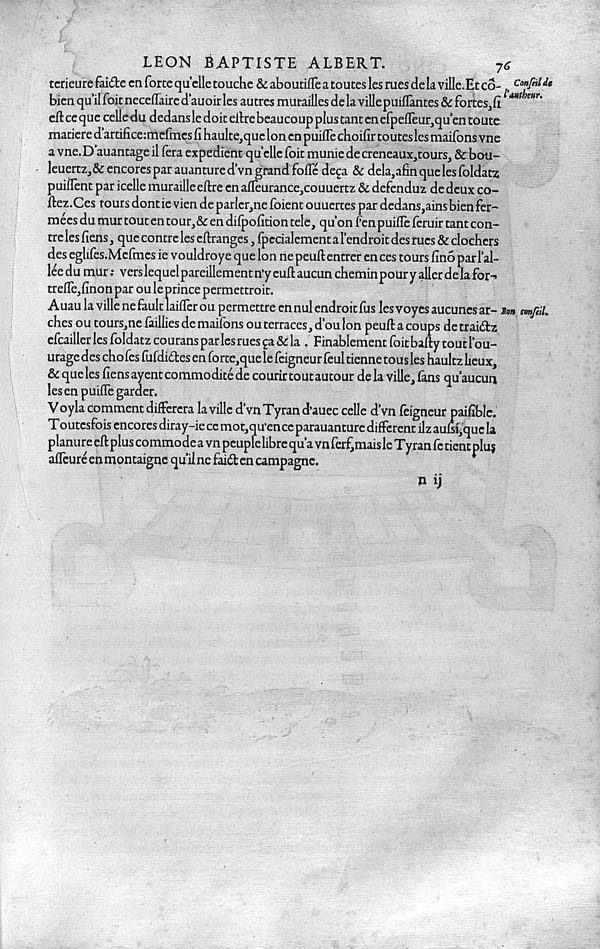 LEON BAPTISTE ALBERT. 76
terieure faicte en ſorte qu'elle touche & aboutiſſe a toutes les rues de la ville. Et cõ-
Conſeil de
l'autheur.
bien qu'il ſoit neceſſaire d'auoir les autres murailles de la ville puiſſantes & fortes, ſi
eſt ce que celle du dedans le doit eſtre beaucoup plus tant en eſpeſſeur, qu'en toute
matiere d'artifice: meſmes ſi haulte, que lon en puiſſe choiſir toutes les maiſons vne
a vne. D'auantage il ſera expedient qu'elle ſoit munie de creneaux, tours, & bou-
leuertz, & encores par auanture d'vn grand foſſé deça & dela, afin que les ſoldatz
puiſſent par icelle muraille eſtre en aſſeurance, couuertz & defenduz de deux co-
ſtez. Ces tours dont ie vien de parler, ne ſoient ouuertes par dedans, ains bien fer-
mées du mur tout en tour, & en diſpoſition tele, qu'on ſ'en puiſſe ſeruir tant con-
tre les ſiens, que contre les eſtranges, ſpecialement a l'endroit des rues & clochers
des egliſes. Meſmes ie vouldroye que lon ne peuſt entrer en ces tours ſinõ par l'al-
lée du mur: vers lequel pareillement n'y euſt aucun chemin pour y aller de la for-
treſſe, ſinon par ou le prince permettroit.
A uau la ville ne fault laiſſer ou permettre en nul endroit ſus les voyes aucunes ar-
Bon conſeil.
ches ou tours, ne ſaillies de maiſons ou terraces, d'ou lon peuſt a coups de traictz
eſcailler les ſoldatz courans par les rues ça & la. Finablement ſoit baſty tout l'ou-
urage des choſes ſuſdictes en ſorte, que le ſeigneur ſeul tienne tous les haultz lieux,
& que les ſiens ayent commodité de courir tout autour de la ville, ſans qu'aucun
les en puiſſe garder.
Voyla comment differera la ville d'vn Tyran d'auec celle d'vn ſeigneur paiſible.
Toutesfois encores diray-ie ce mot, qu'en ce parauanture different ilz auſsi, que la
planure eſt plus commode a vn peuple libre qu'a vn ſerf, mais le Tyran ſe tient plus
aſſeuré en montaigne qu'il ne faict en campagne.
n ij